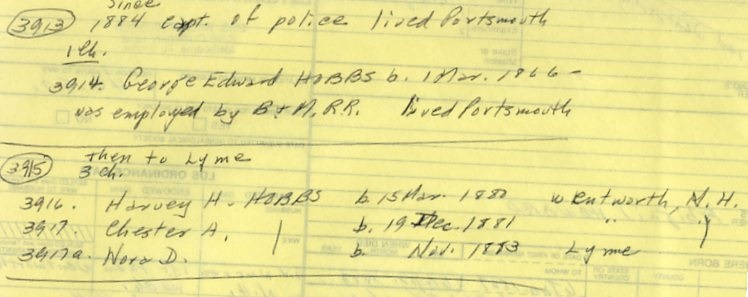 since
3913 1884 capt. of police lived Portsmouth
1 ch.
3914. George Edward HOBBS b. 1 Mar. 1866 -
was employed by B + M. R.R. lived Portsmouth
3915 then to Lyme
3 ch.
3916. Harvey H. HOBBS b. 15 Mar. 1880 Wentworth, N.H.
3917. Chester A. | b. 19 Dec. 1881 " "
3917a. Nora D. b. Nov. 1883 Lyme